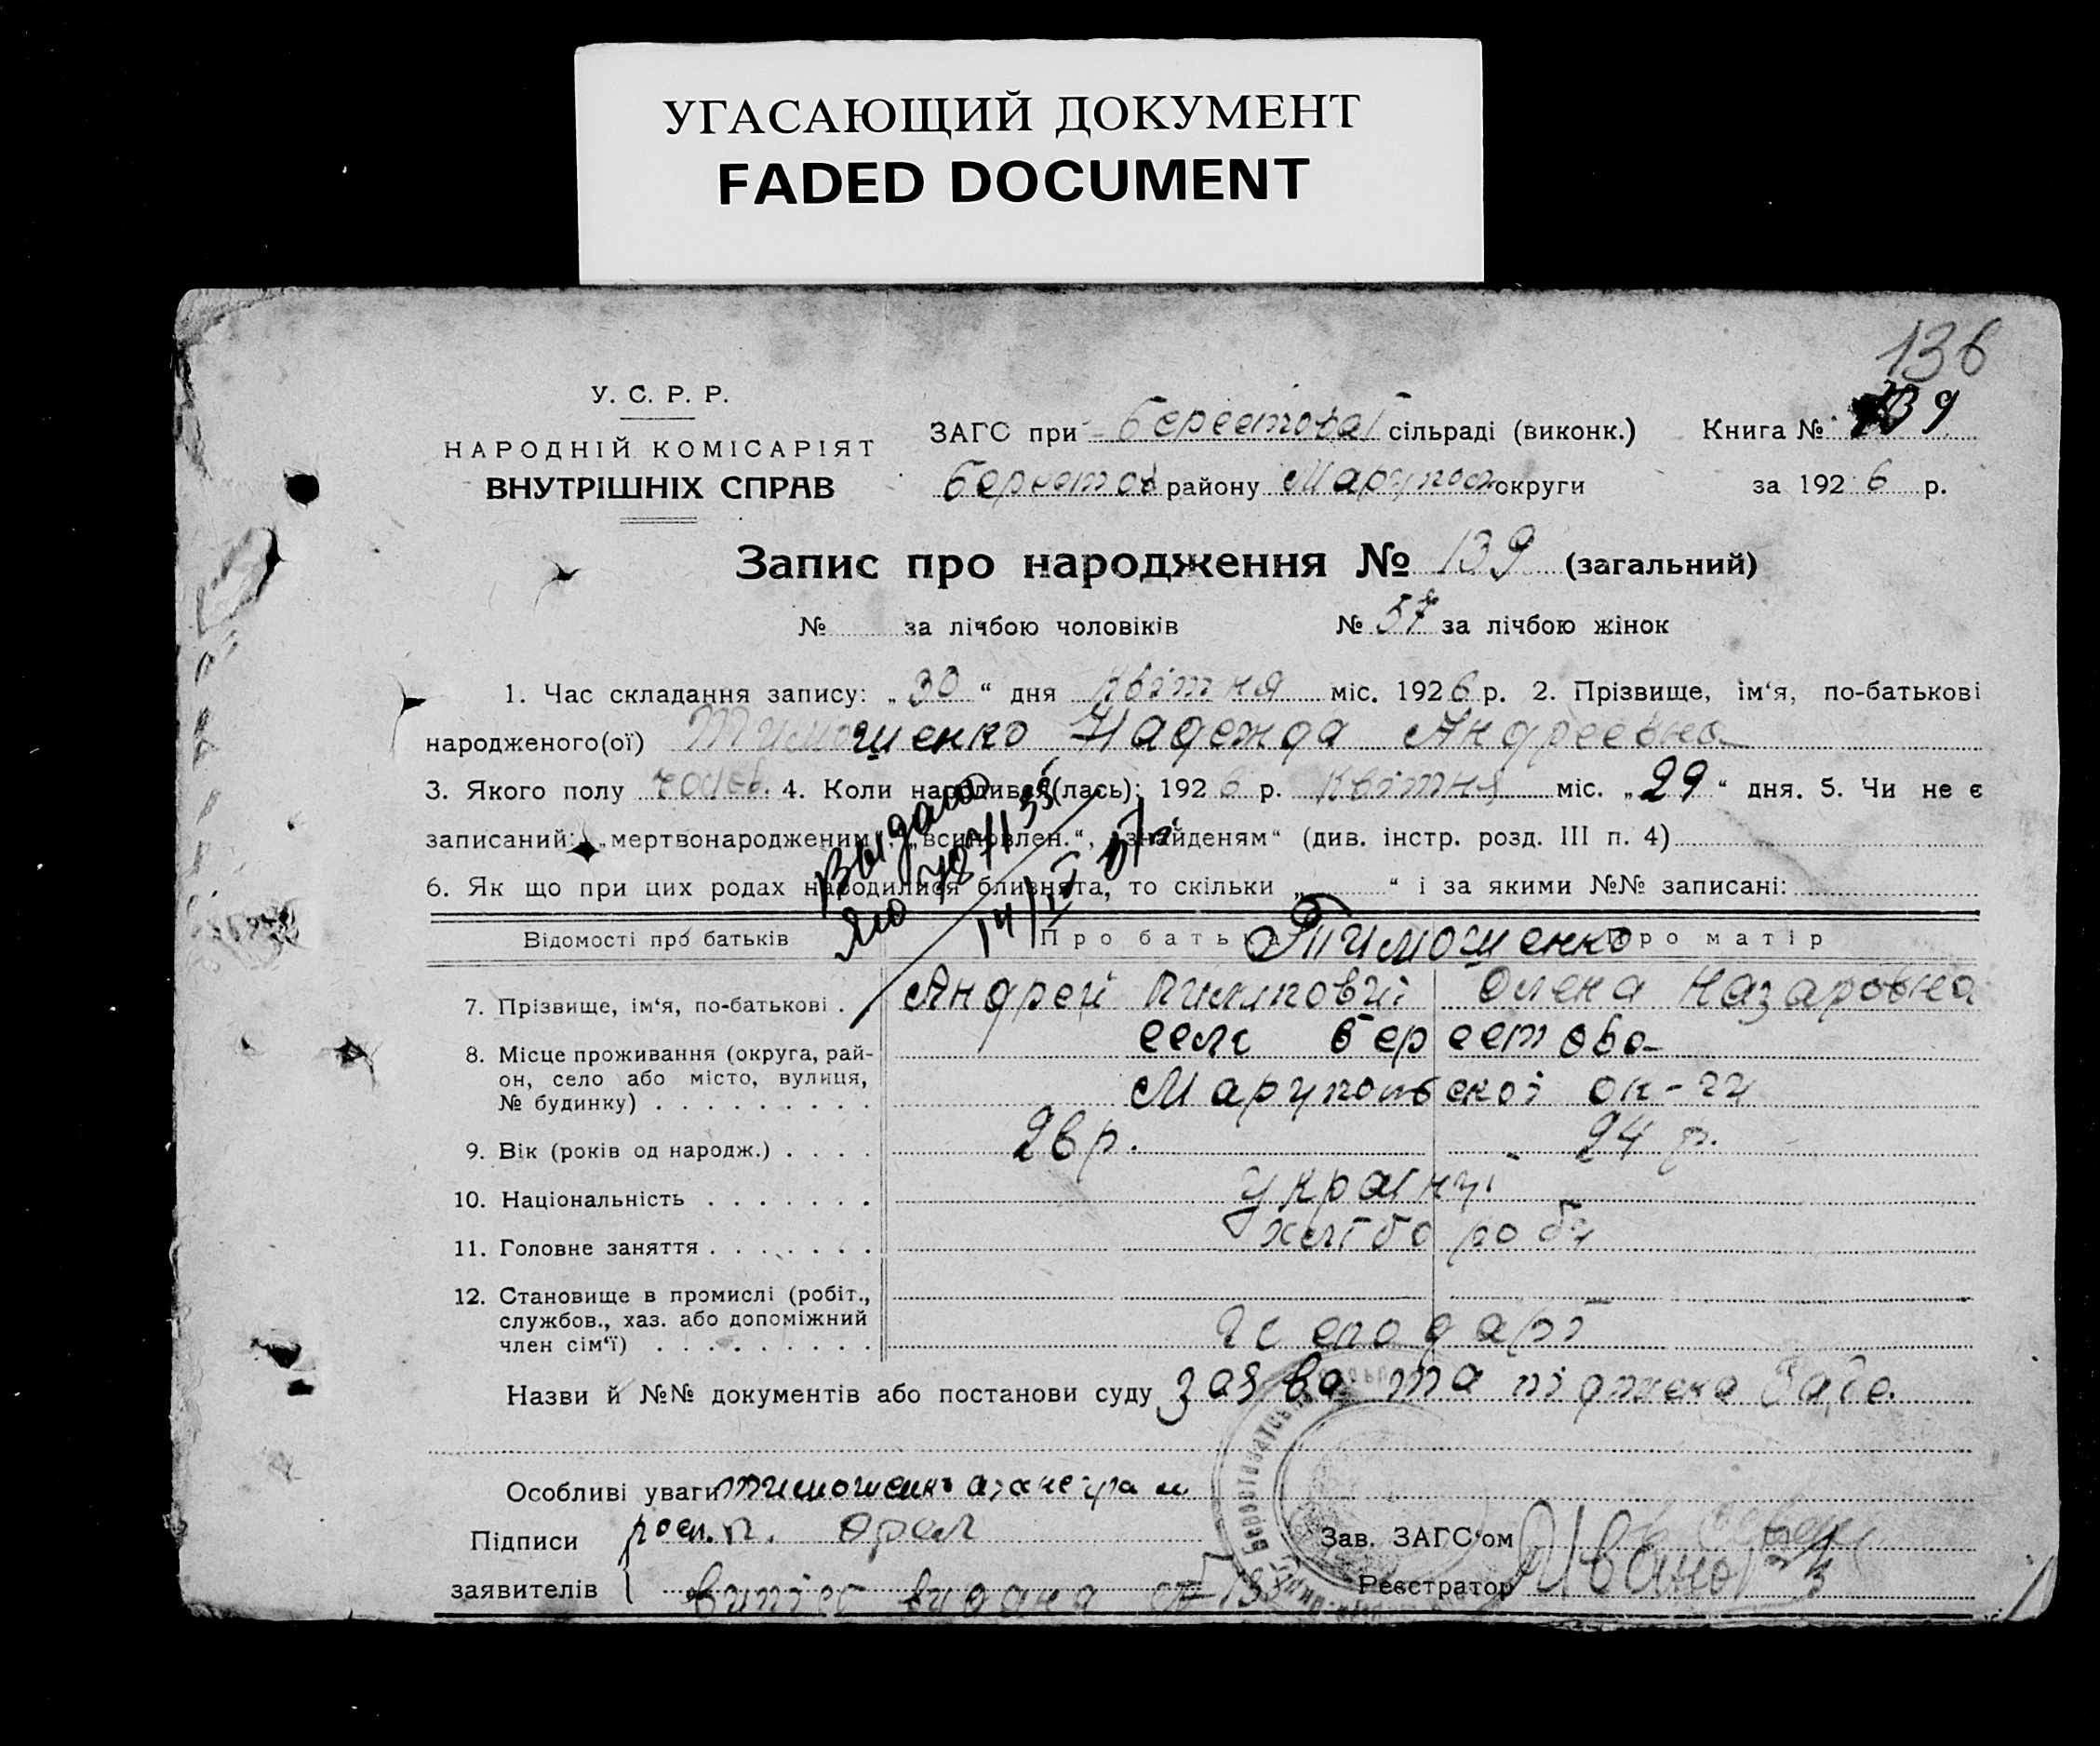 УГАСАЮЩИЙ ДОКУМЕНТ
FADED DOCUMENT
136
У. С. Р. Р.
НАРОДНІЙ КОМІСАРІЯТ
ВНУТРІШНІХ СПРАВ
ЗАГС при Берестовай сільраді (виконк.) Книга № 139
Берестов району Марупол округи за 1926 р.
Запис про народження № 139 (загальний)
№ за лічбою чоловіків № 57 за лічбою жінок
1. Час складання запису: „30“ дня квітня міс. 1926 р. 2. Прізвище, ім‘я, по-батькові
народженого(ої) Тимошенко Надежда Андреевна
3. Якого полу 4. Коли народився(лась): 1926 р. квітня міс. „29“ дня. 5. Чи не є
записаний: „мертвонародженим“, „всиновлен.“, „знайденям“ (див. інстр. розд. III п. 4)
6. Як що при цих родах народилися близнята, то скільки „ “ і за якими №№ записані:
Выдано
Відомості про батьків Про батька Про матір
Тимошенко
7. Прізвище, ім‘я, по-батькові . Андрей Пилипович Олена Назаровна
8. Місце проживання (округа, рай- село Берестова
он, село або місто, вулиця, Марупольськоі ок-ги
№ будинку) . . . . . . . . .
9. Вік (років од народж.) . . . . 26 р. 24 р.
10. Національність . . . . . . . украінці
11. Головне заняття . . . . . . . хлібороби
12. Становище в промислі (робіт.,
службов., хаз. або допоміжний господарі
член сім‘ї) . . . . . . . . .
Назви й №№ документів або постанови суду заява та
Особливі уваги
Підписи
заявителів видана
Зав. ЗАГС‘ом
Реєстратор